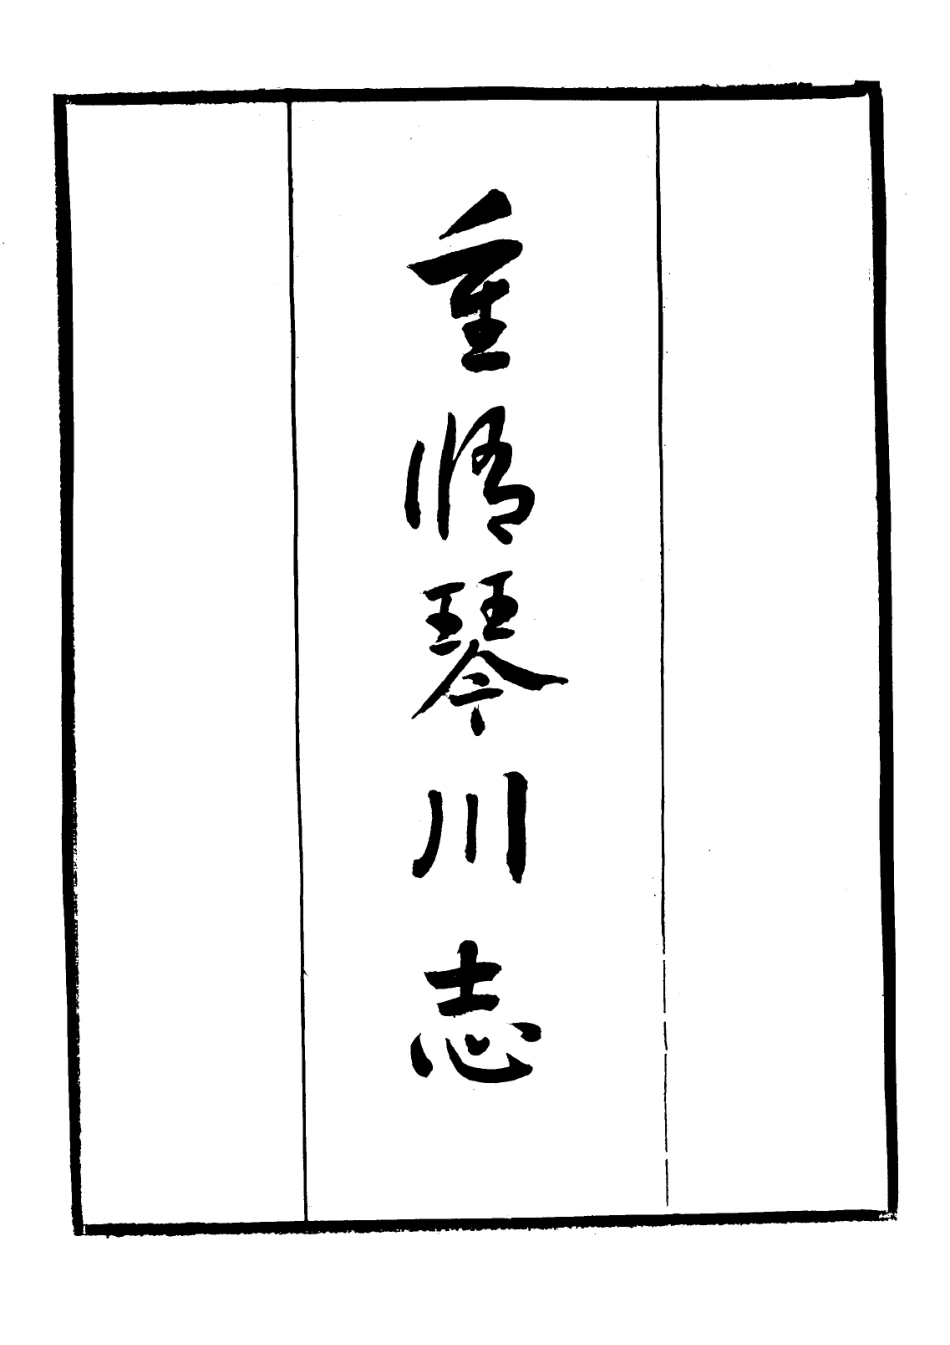 重脩琴川志